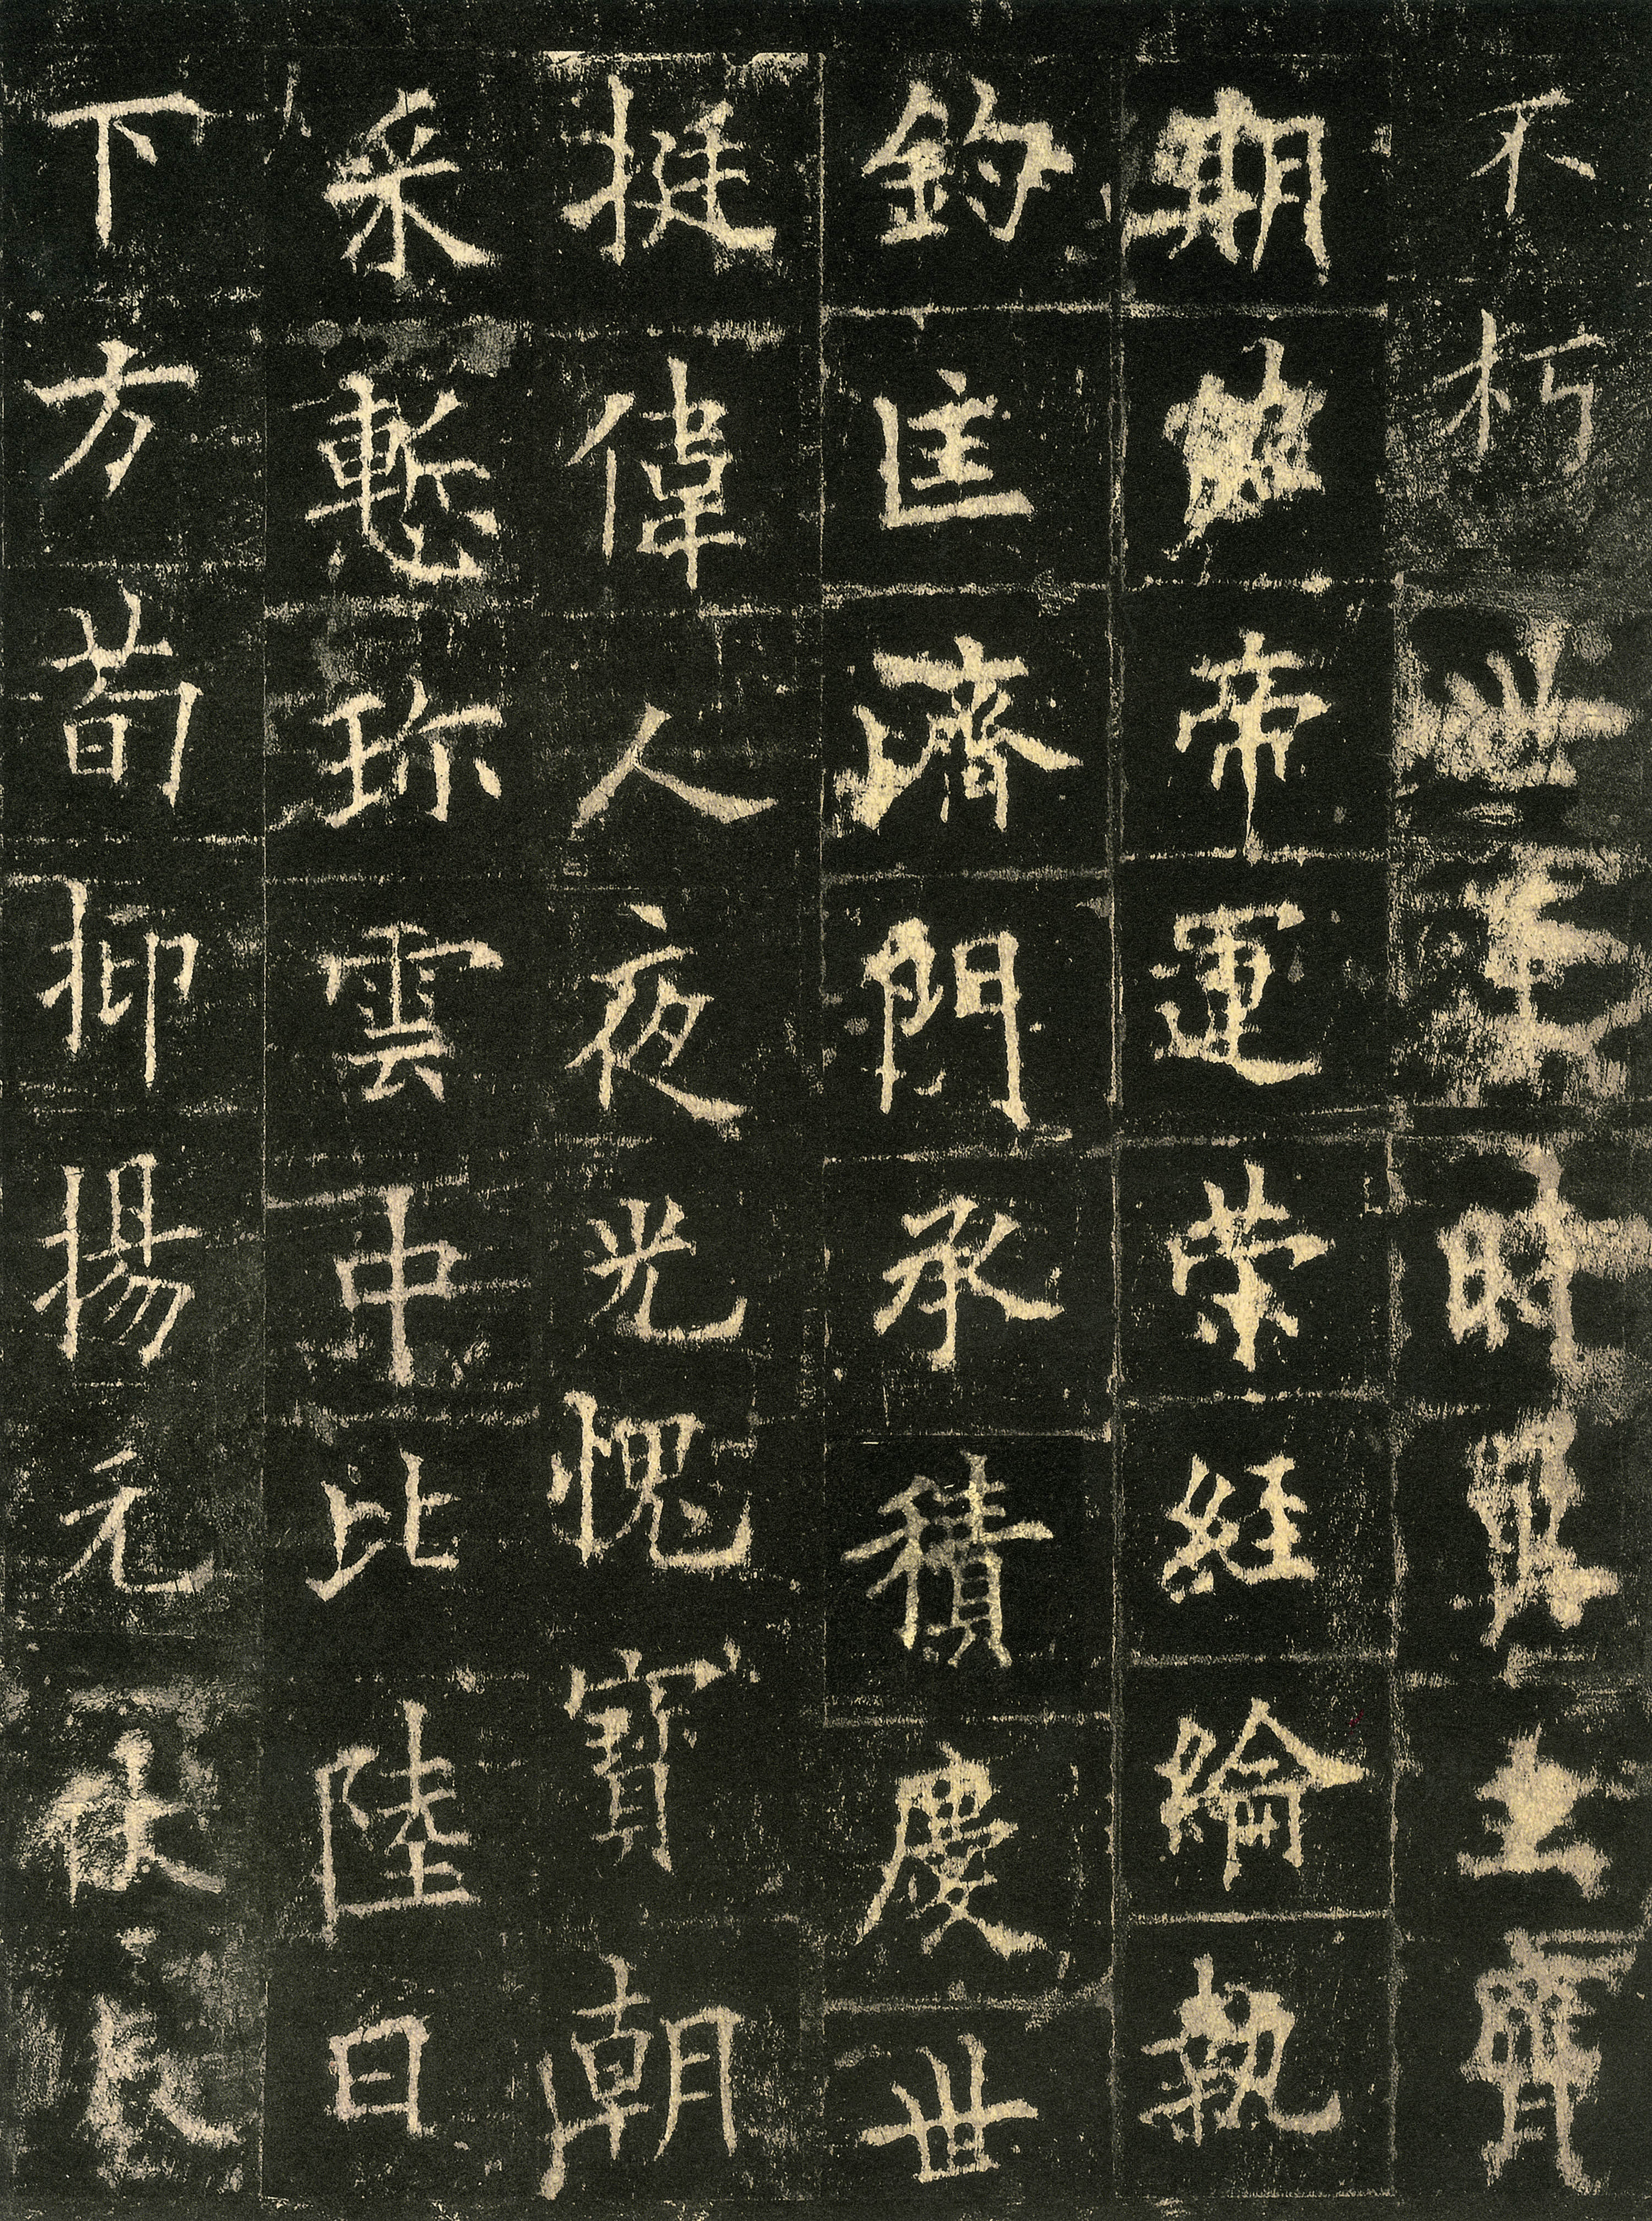 不朽世逢時翼主膺
期佐帝運策經綸執
鈞匡濟門承積慶世
挺偉人夜光愧寶朝
采慙珎雲中比陸日
下方荀抑揚元